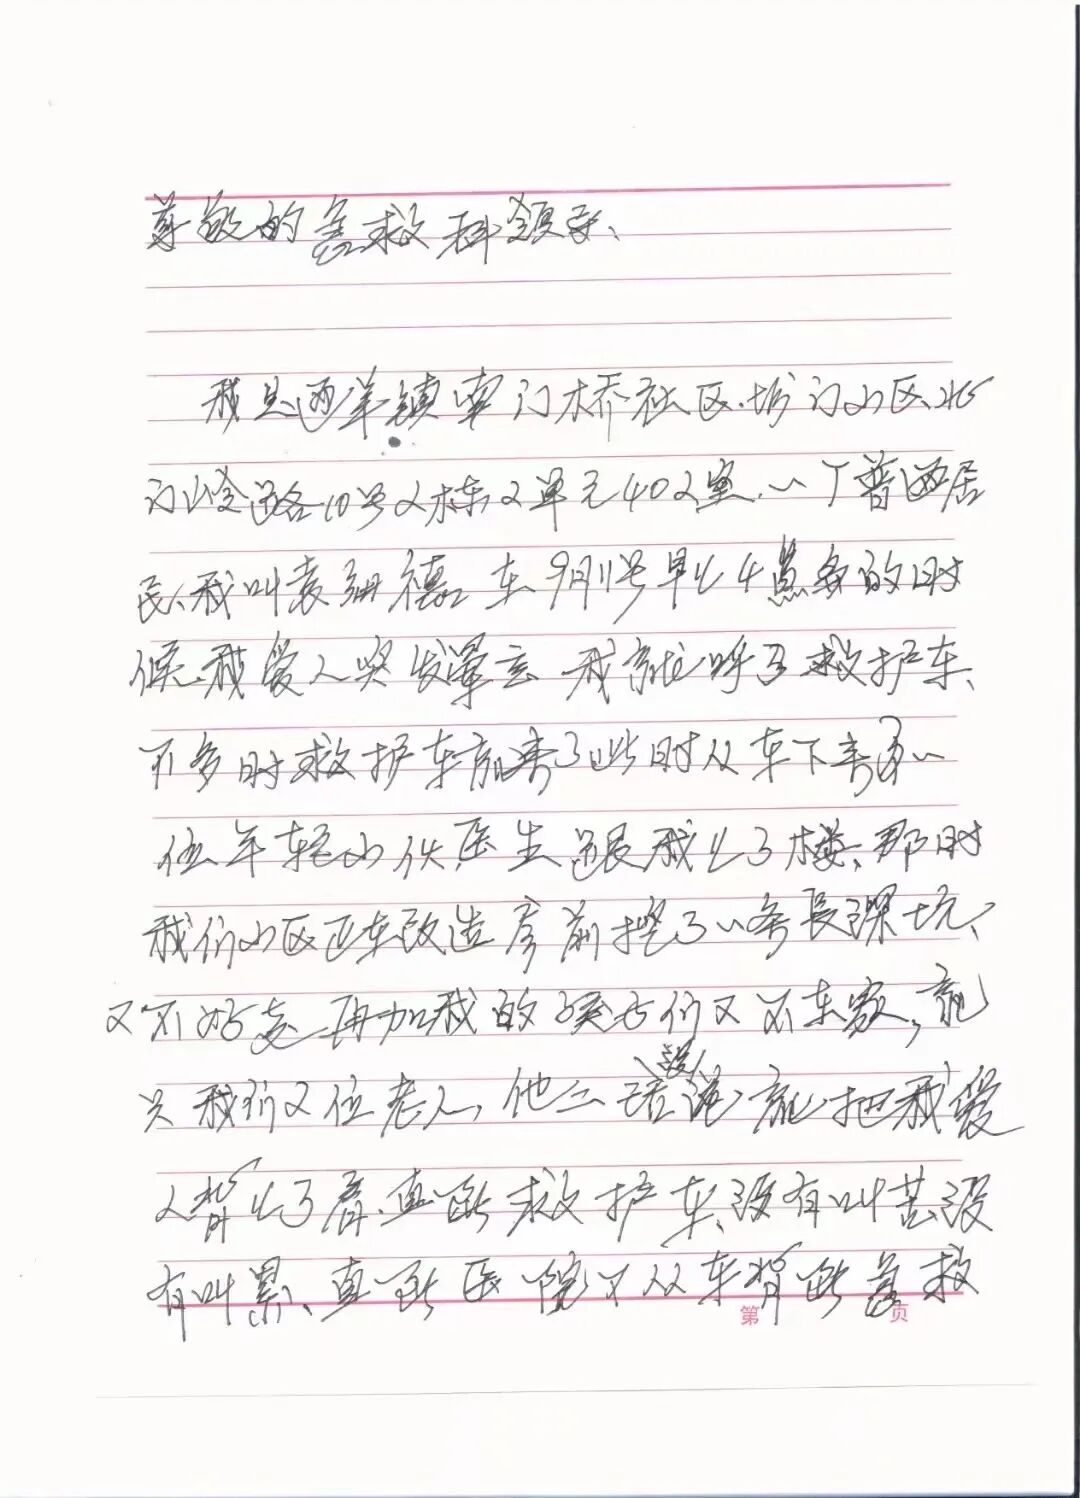 尊敬的急救科领导、
我是西洋镇南门桥社区.坊门小区北
门岭路10号2栋2单元402室.一个普通居
民、我叫袁 德.在9月11号早上4点多的时
候.我爱人突发晕玄.我就呼了救护车、
不多时救护车就来了此时从车下来了一
位年轻小伙医生跟我上了楼、那时
我们小区正在改造房前挖了一条长深坑、
又不好走.再加我的孩子们又不在家,就
只我们2位老人,他二话没说就把我爱
人背上了肩.直到救护车、没有叫苦没
有叫累、直到医院又从车背到急救
第 页